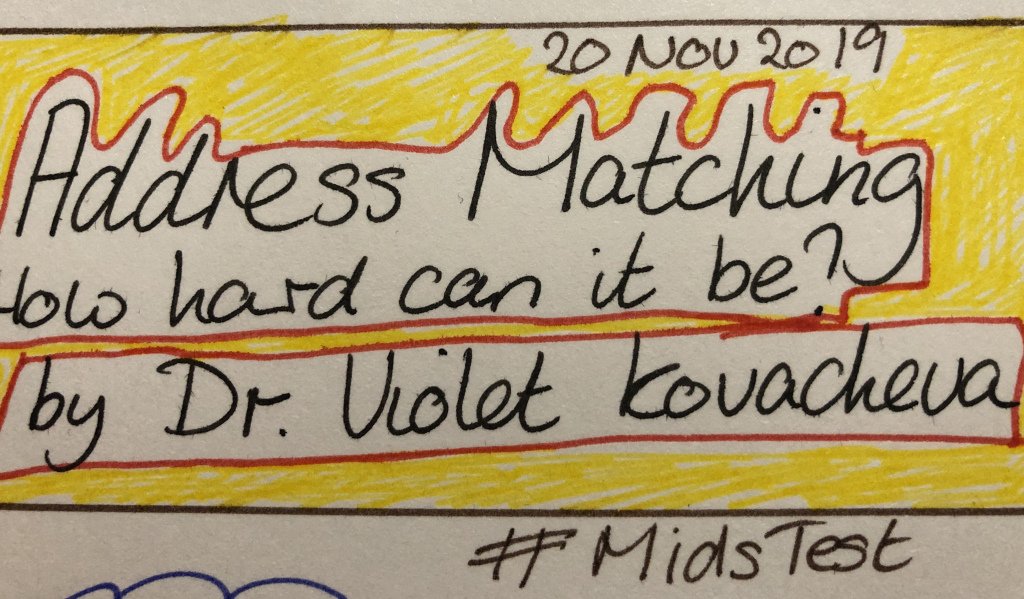 20 Nov 2019
Address Matching
How hard can it be?
by Dr. Violet Kovacheva
#MidsTest